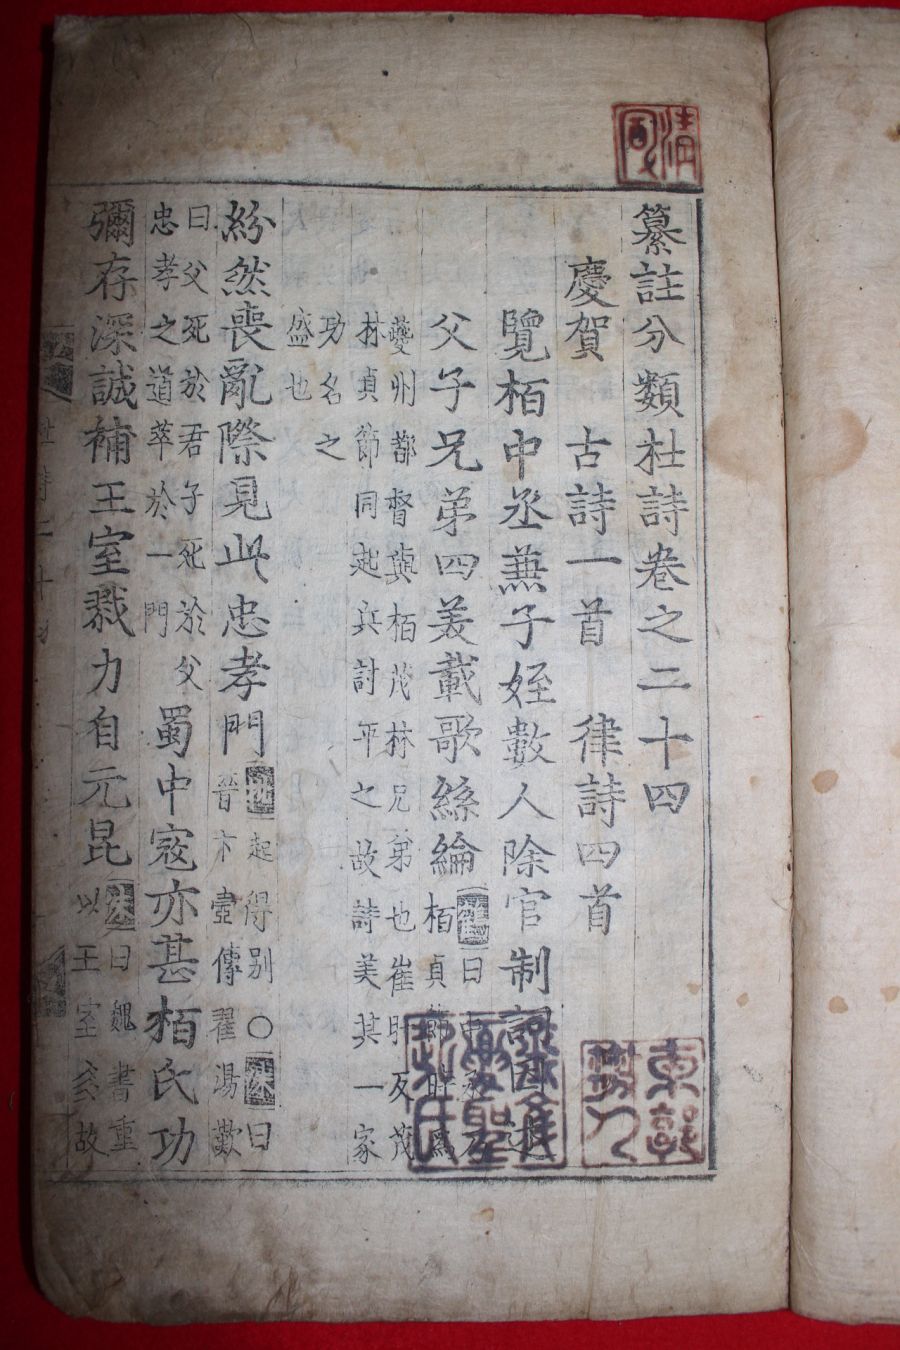 纂註分類杜詩卷之二十四
慶賀 古詩一首 律詩四首
覽栢中丞蕪子姪數人除官制詞因述
父子兄弟四美載歌絲綸
曰中丞乃
栢貞節時爲
夔州都督龔栢茂林兄弟也崔旰反茂
林貞節同起兵討平之故詩美其一家
功名之
盛也
紛然喪亂際見此忠孝門
起得別○曰
晉卞壼傳翟湯歎
曰父死於君子死於父
忠孝之道萃於一門
蜀中寇亦甚栢氏功
彌存深誠補王室戮力自元昆
曰魏書重
以王室多故